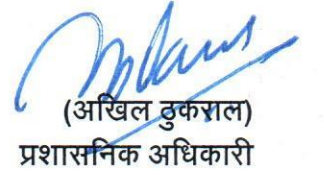 (अखिल ठुकराल)
प्रशासनिक अधिकारी